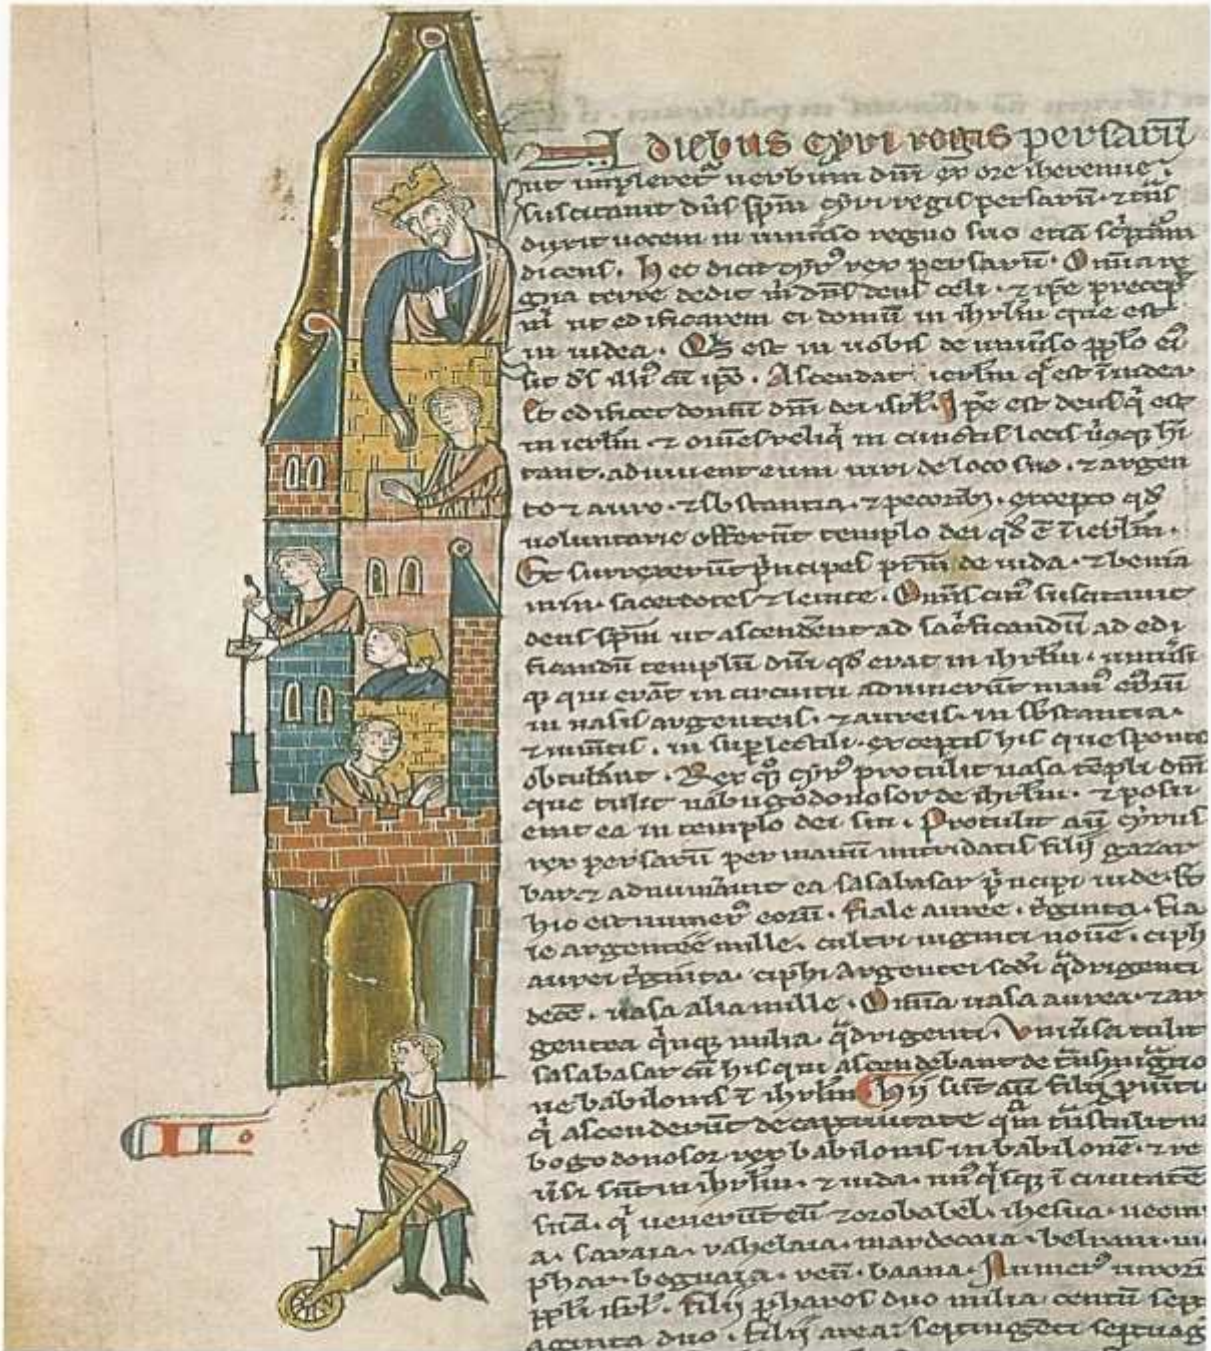 In diebus cyri regis persarū
ut impleretᷣ uerbum dn̄i ex ore iheremie.
suscitauit dn̄s sp̄m cyri regis persarū. ⁊
uocem in regno suo etiā
dicens. Hec dicit cyrꝰ rex persarū. Omīa re
gna terre dedit m̄ dn̄s deus celi. ⁊ ip̄e precep̄
m̄ ut edificarem ei domū in ihrl̄m que est
in iudea. Qͥs est in uobis de uniuso ppl̄o eiꝰ
sit d̄s illiꝰ cū ip̄o. Ascendat ierl̄m q̄ est ī iudea
et edificet domū dn̄i dei isrl̄. Ip̄e est deus qͥ est
in ierl̄m ⁊ om̄es reliqͥ in cunctis locis
tant. adiuuent eum uiri de loco suo. ⁊ argen
to ⁊ auro. ⁊ sb̄stantia. ⁊ pecoribꝫ. excepto qd̄
uoluntarie offerūt templo dei qd̄ ē ī ierl̄m.
Et surrexerūt pͥncipes pr̄m de iuda. ⁊ benia
min. sacerdotes ⁊ leuite. Om̄is suscitauit
deus sp̄m ut ascendent ad ad edi
ficandū templū dn̄i qd̄ erat in ihrl̄m. uniuͥsi
qꝫ qui erāt in circuitu adiuuerūt manꝰ eoꝝ
in uasis argenteis. ⁊ aureis. in sb̄stantia.
⁊ iumētis. in sup̄lectili. exceptis his que sponte
obtulāt. Rex qͦꝫ cyrꝰ protulit uasa tēpli dn̄i
que tulit nabugodonosor de ihrl̄m. ⁊ posu
erat ea in templo dei sui. Protulit aū cyrus
rex persarū per manū mitridatis filii gazar
bar. ⁊ adnumauit ea sasabasar pͥncipi iude. ⁊
hic est numerꝰ eorū. fiale auree. tͥginta. fia
le argentee mille. cultri uiginti nouē. ciphi
aurei tͥginta. ciphi Argentei scd̄i qͣdrigenti
decē. uasa alia mille. Omīa uasa aurea. ⁊ ar
gentea qͥnqꝫ milia. qͣdrigenti. Vniūsa tulit
sasabasar cū his qui ascendebant de
ne babilonis ī ihrl̄m. Hii sūt aū filii ꝓuīcie
qͥ ascenderūt de captiuitate qͣm tͣnstulit na
bogodonosor rex babilonis in babilonē. ⁊ re
uͥsi sūt in ihrl̄m. ⁊ iuda. ī ciuitatē
suā. qͥ uenerūt cū zorobabel. ihesua. neem
a. saraia. rahelaia. mardocaia. belsam. m
phar. beguaia. reū. baana. Numerꝰ uirorū
ppl̄i isrl̄. filii phares duo milia centū sept
aginta duo. filii area. septingēti septuag